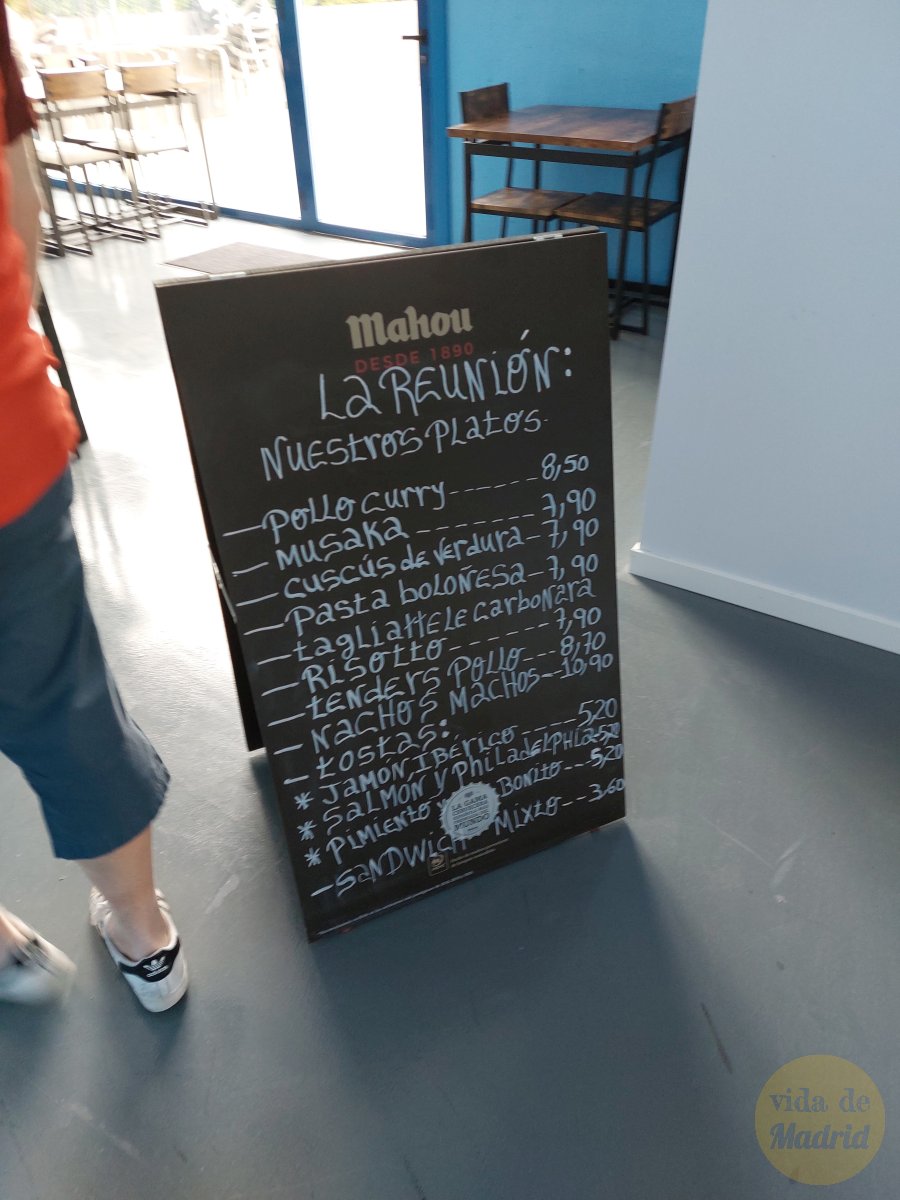 Mahou
DESDE 1890
LA REUNIÓN:
NUESTROS PLATOS.
- POLLO CURRY ------ 8,50
- MUSAKA -------- 7,90
- CUSCÚS DE VERDURA - 7,90
- PASTA BOLOÑESA - 7,90
- TAGLIATTELE CARBONARA
- RISOTTO ------- 7,90
- TENDERS POLLO --- 8,70
- NACHOS MACHOS -- 10,90
- TOSTAS:
* JAMÓN IBÉRICO ----- 5,20
* SALMÓN Y PHILADELPHIA 5,20
* PIMIENTO Y BONITO --- 5,20
- SANDWICH MIXTO -- 3,60
LA GAMA
CERVECERA
MUNDO
adidas
vida de
Madrid